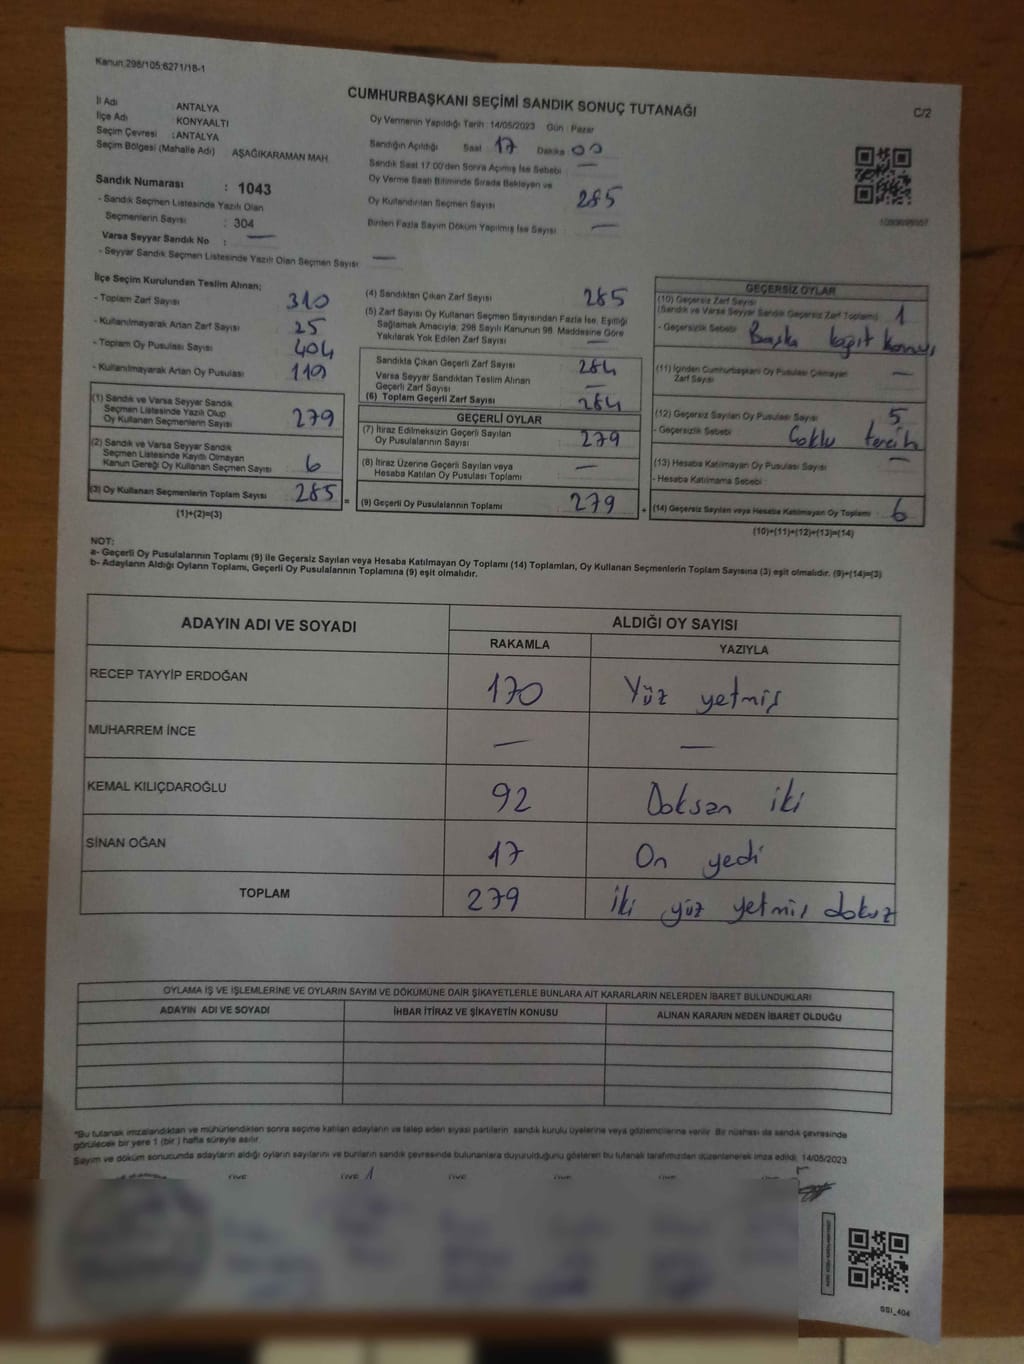 Kanun:298/105;6271/18-1
CUMHURBAŞKANI SEÇİMİ SANDIK SONUÇ TUTANAĞI
C/2
İl Adı ANTALYA
İlçe Adı KONYAALTI
Seçim Çevresi : ANTALYA
Seçim Bölgesi (Mahalle Adı) AŞAĞIKARAMAN MAH.
Sandık Numarası : 1043
- Sandık Seçmen Listesinde Yazılı Olan
Seçmenlerin Sayısı : 304
Varsa Seyyar Sandık No : —
- Seyyar Sandık Seçmen Listesinde Yazılı Olan Seçmen Sayısı —
Oy Vermenin Yapıldığı Tarih : 14/05/2023 Gün : Pazar
Sandığın Açıldığı Saat 17 Dakika 00
Sandık Saat 17:00'den Sonra Açılmış İse Sebebi : —
Oy Verme Saati Bitiminde Sırada Bekleyen ve
Oy Kullandırılan Seçmen Sayısı 285
Birden Fazla Sayım Döküm Yapılmış İse Sayısı : —
İlçe Seçim Kurulundan Teslim Alınan;
- Toplam Zarf Sayısı 310
- Kullanılmayarak Artan Zarf Sayısı 25
- Toplam Oy Pusulası Sayısı 404
- Kullanılmayarak Artan Oy Pusulası 119
(1) Sandık ve Varsa Seyyar Sandık
Seçmen Listesinde Yazılı Olup
Oy Kullanan Seçmenlerin Sayısı 279
(2) Sandık ve Varsa Seyyar Sandık
Seçmen Listesinde Kayıtlı Olmayan
Kanun Gereği Oy Kullanan Seçmen Sayısı 6
(3) Oy Kullanan Seçmenlerin Toplam Sayısı 285 =
(1)+(2)=(3)
(4) Sandıktan Çıkan Zarf Sayısı 285
(5) Zarf Sayısı Oy Kullanan Seçmen Sayısından Fazla İse, Eşitliği
Sağlamak Amacıyla, 298 Sayılı Kanunun 98. Maddesine Göre
Yakılarak Yok Edilen Zarf Sayısı —
Sandıkta Çıkan Geçerli Zarf Sayısı 284
Varsa Seyyar Sandıktan Teslim Alınan
Geçerli Zarf Sayısı —
(6) Toplam Geçerli Zarf Sayısı 284
GEÇERLİ OYLAR
(7) İtiraz Edilmeksizin Geçerli Sayılan
Oy Pusulalarının Sayısı : 279
(8) İtiraz Üzerine Geçerli Sayılan veya
Hesaba Katılan Oy Pusulası Toplamı : —
(9) Geçerli Oy Pusulalarının Toplamı : 279 +
GEÇERSİZ OYLAR
(10) Geçersiz Zarf Sayısı
(Sandık ve Varsa Seyyar Sandık Geçersiz Zarf Toplamı) 1
- Geçersizlik Sebebi Başka kağıt konmuş
(11) İçinden Cumhurbaşkanı Oy Pusulası Çıkmayan
Zarf Sayısı —
(12) Geçersiz Sayılan Oy Pusulası Sayısı : 5
- Geçersizlik Sebebi Çoklu tercih
(13) Hesaba Katılmayan Oy Pusulası Sayısı —
- Hesaba Katılmama Sebebi
(14) Geçersiz Sayılan veya Hesaba Katılmayan Oy Toplamı : 6
(10)+(11)+(12)+(13)=(14)
NOT:
a- Geçerli Oy Pusulalarının Toplamı (9) ile Geçersiz Sayılan veya Hesaba Katılmayan Oy Toplamı (14) Toplamları, Oy Kullanan Seçmenlerin Toplam Sayısına (3) eşit olmalıdır. (9)+(14)=(3)
b- Adayların Aldığı Oyların Toplamı, Geçerli Oy Pusulalarının Toplamına (9) eşit olmalıdır.
ADAYIN ADI VE SOYADI
ALDIĞI OY SAYISI
RAKAMLA YAZIYLA
RECEP TAYYİP ERDOĞAN 170 Yüz yetmiş
MUHARREM İNCE — —
KEMAL KILIÇDAROĞLU 92 Doksan iki
SİNAN OĞAN 17 On yedi
TOPLAM 279 iki yüz yetmiş dokuz
OYLAMA İŞ VE İŞLEMLERİNE VE OYLARIN SAYIM VE DÖKÜMÜNE DAİR ŞİKAYETLERLE BUNLARA AİT KARARLARIN NELERDEN İBARET BULUNDUKLARI
ADAYIN ADI VE SOYADI İHBAR İTİRAZ VE ŞİKAYETİN KONUSU ALINAN KARARIN NEDEN İBARET OLDUĞU
*Bu tutanak imzalandıktan ve mühürlendikten sonra seçime katılan adayların ve talep eden siyasi partilerin sandık kurulu üyelerine veya gözlemcilerine verilir. Bir nüshası da sandık çevresinde
görülecek bir yere 1 (bir ) hafta süreyle asılır.
Sayım ve döküm sonucunda adayların aldığı oyların sayılarını ve bunların sandık çevresinde bulunanlara duyurulduğunu gösteren bu tutanak tarafımızdan düzenlenerek imza edildi. 14/05/2023
SSI_404